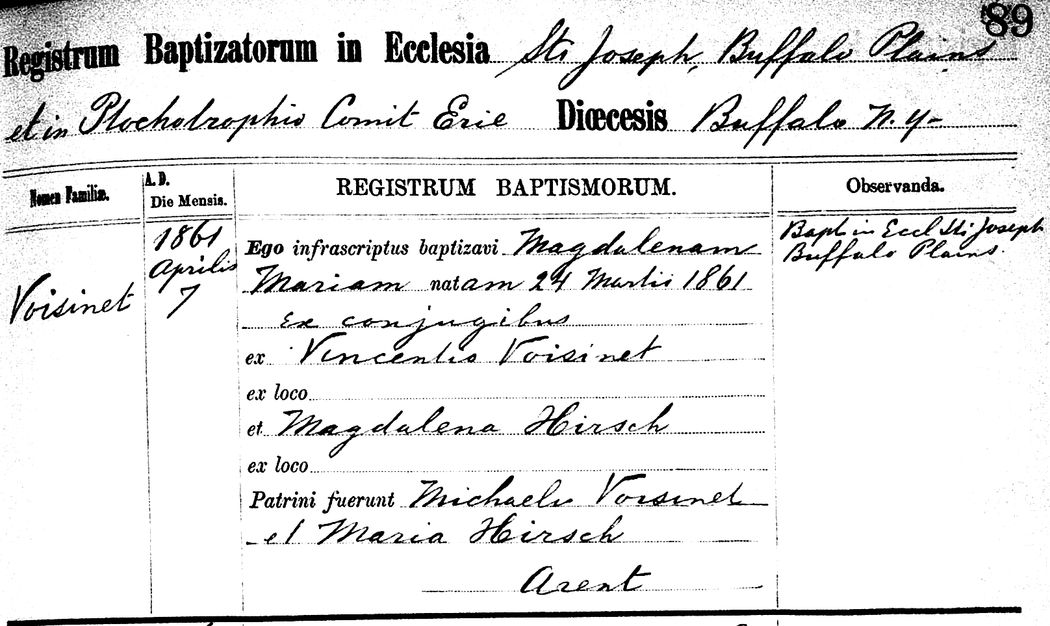 89
Registrum Baptizatorum in Ecclesia Sti Joseph, Buffalo Plains
et in Ptochotrophio Comit Erie Diœcesis Buffalo N. Y-
Nomen Familiæ.
A. D.
Die Mensis.
REGISTRUM BAPTISMORUM.
Observanda.
Voisinet
1861
Aprilis
7
Ego infrascriptus baptizavi Magdalenam
Mariam natam 24 Martii 1861
Ex conjugibus
ex Vincentio Voisinet
ex loco
et Magdalena Hirsch
ex loco
Patrini fuerunt Michaele Voisinet
et Maria Hirsch
Arent
Bapt in Eccl Sti Joseph
Buffalo Plains.